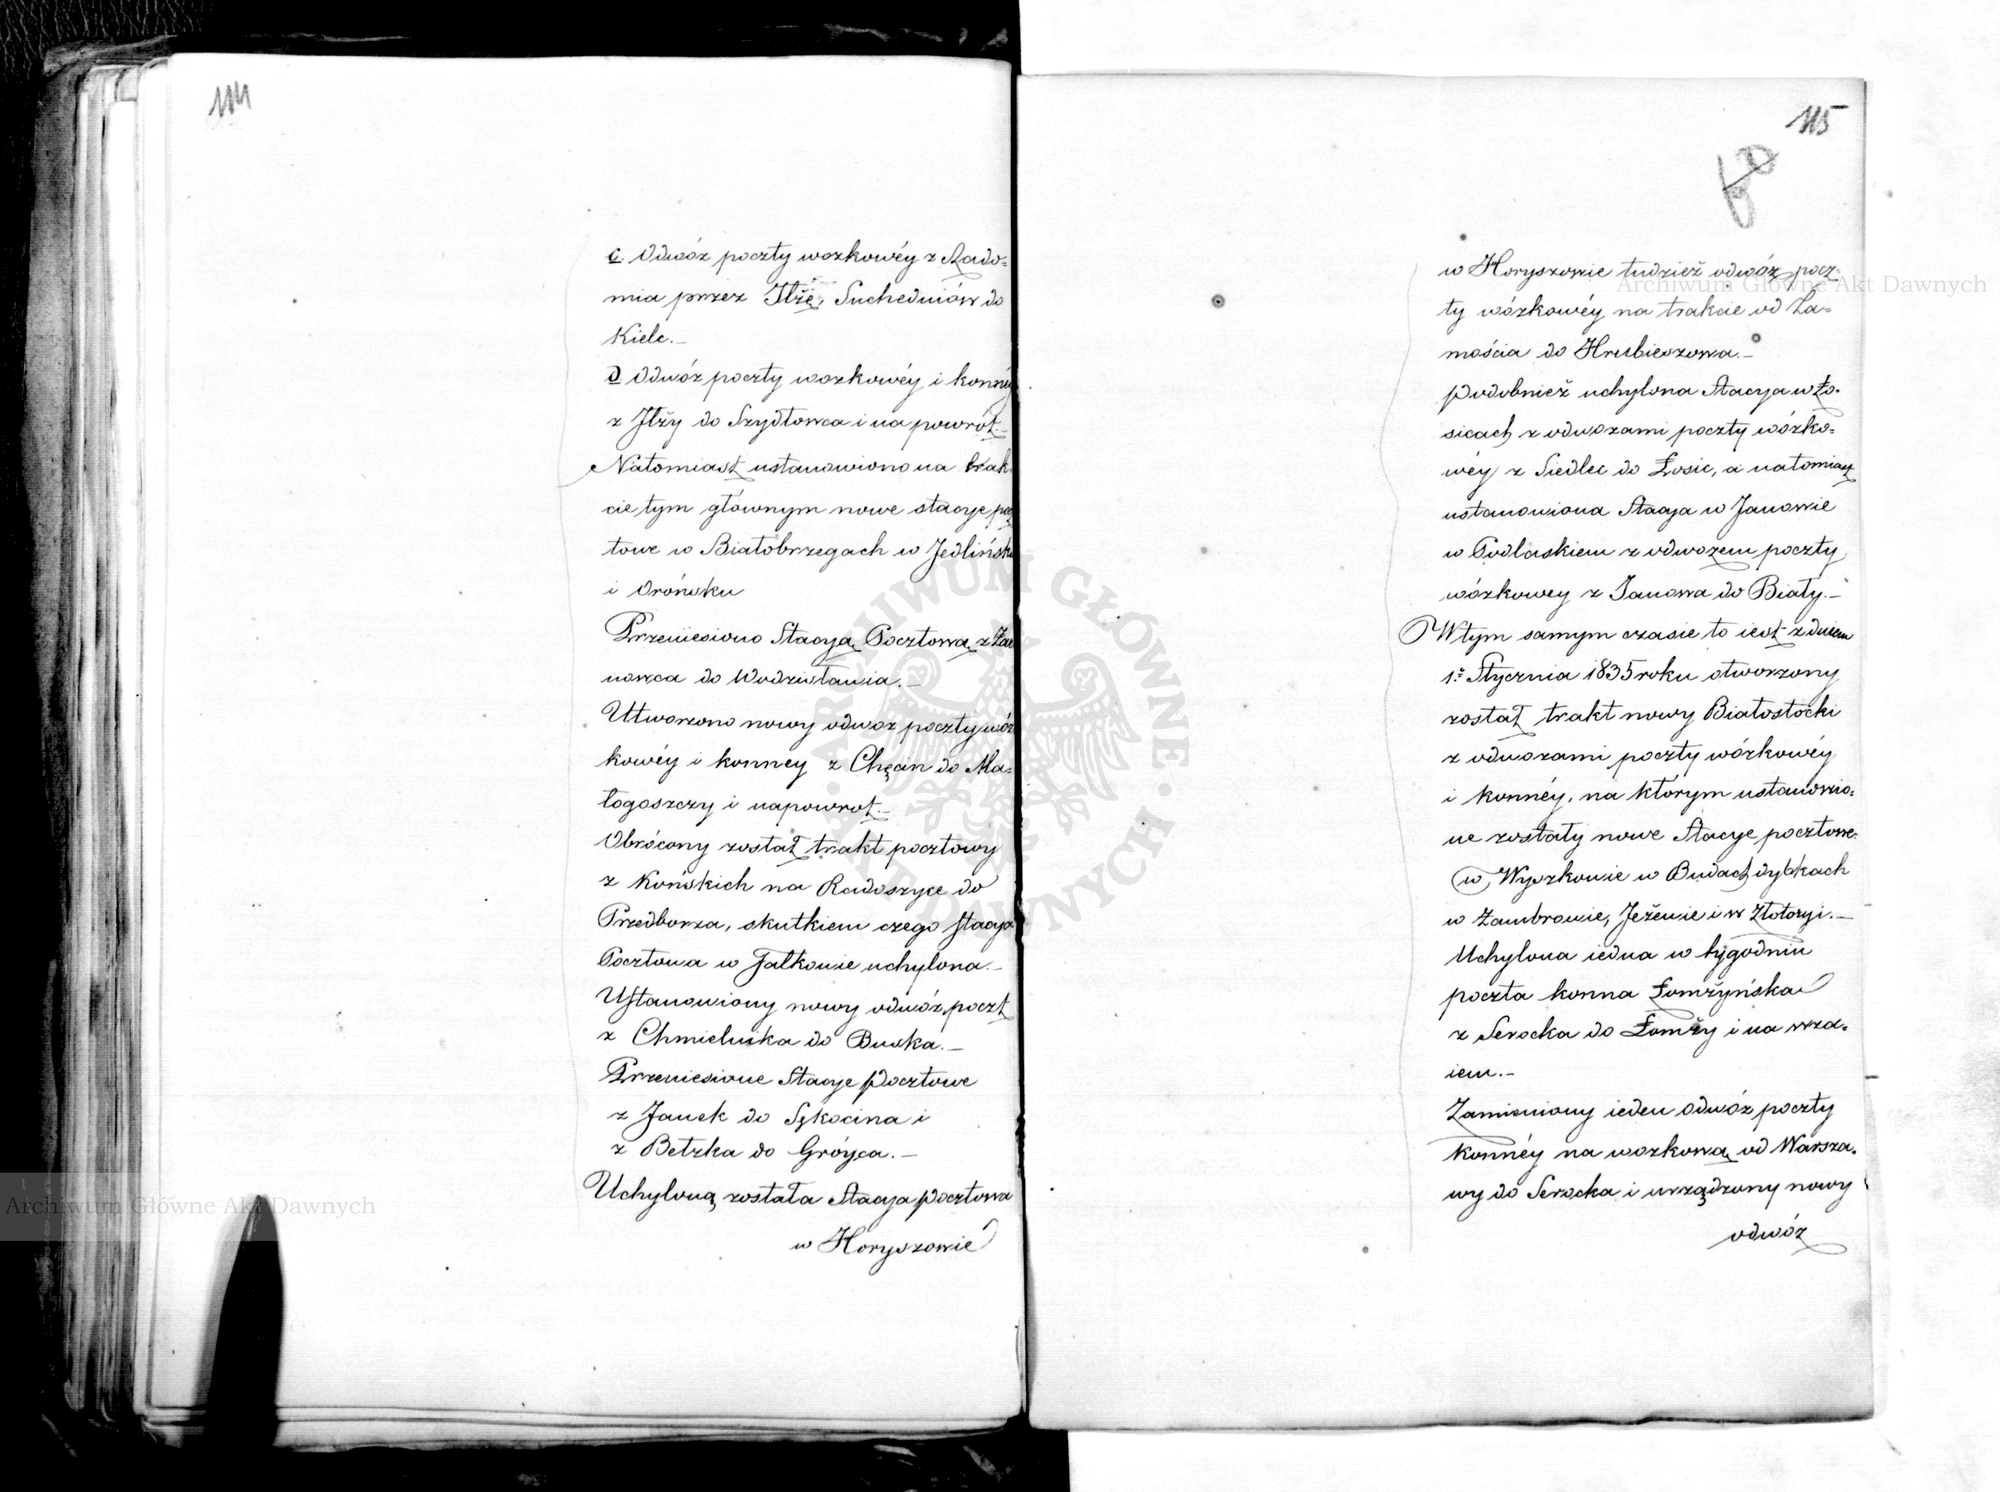 114
c. Odwóz poczty wozkowéy z Rado=
mia przez Iłżę, Suchedniów do
Kielc.—
d Odwóz poczty wozkowéy i konnéy
z Iłży do Szydłowca i na powrót.—
Natomiast ustanowiono na trak
cie tym głównym nowe stacye pocz
towe w Białobrzegach w Jedlińsku
i Orońsku
Przeniesiono Stacyą Pocztową z Żar
nowca do Wodzisławia.—
Utworzono nowy odwoz poczty wóz
kowéy i konney z Chęcin do Ma=
łogoszczy i napowrot.—
Obrócony został trakt pocztowy
z Końskich na Radoszyce do
Przedborza, skutkiem czego stacya
Pocztowa w Fałkowie uchylona.—
Ustanowiony nowy odwóz poczt
z Chmielnika do Buska.—
Przeniesione Stacye Pocztowe
z Janek do Sękocina i
z Betzka do Gróyca.—
Uchyloną została Stacya Pocztowa
w Horyszowie
115
w Horyszowie tudzież odwóz pocz=
ty wózkowéy na trakcie od Za=
mościa do Hrubieszowa.—
Podobnież uchylona Stacya w Ło=
sicach z odwozami poczty wózko=
wéy z Siedlec do Łosic, a natomiast
ustanowiona Stacya w Janowie
w Podlaskiem z odwozem poczty
wózkowey z Janowa do Biały.—
W tym samym czasie to iest z dniem
1º Stycznia 1835 roku otworzony
został trakt nowy Białostocki
z odwozami poczty wózkowéy
i konnéy, na którym ustanowio=
ne zostały nowe Stacye pocztowe.
w Wyszkowie w Budach dybkach
w Zambrowie, Jeżenie i w Złotoryi.—
Uchylona iedna w tygodniu
poczta konna Łomżyńska
z Serocka do Łomży i na wza=
iem.—
Zamieniony ieden odwóz poczty
konnéy na wozkową od Warsza=
wy do Serocka i urządzony nowy
odwóz
Archiwum Główne Akt Dawnych
Archiwum Główne Akt Dawnych
ARCHIWUM GŁÓWNE AKT DAWNYCH